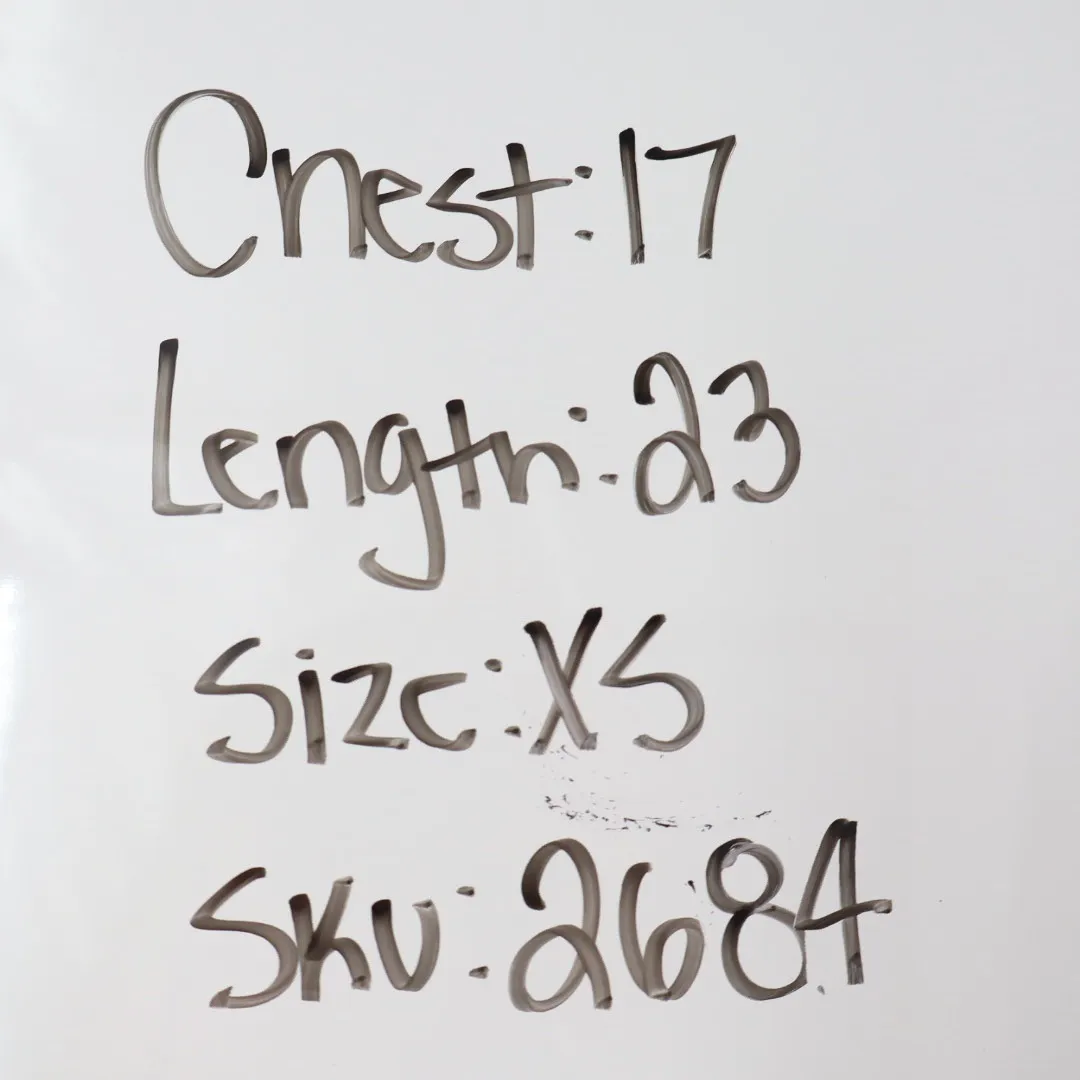 Chest: 17
Length: 23
Size: XS
SKU: 2684